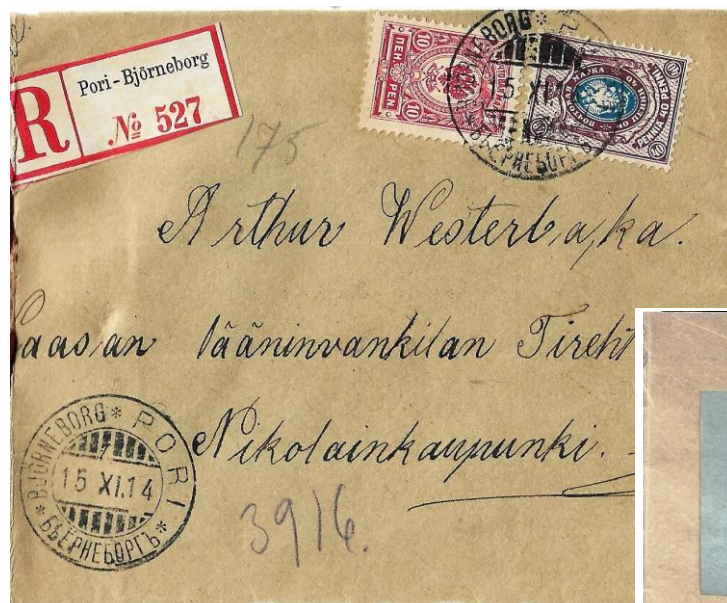 R
Pori-Björneborg
№ 527
10 ПЕН PEN 10
BJÖRNEBORG * PORI * БЬЕРНЕБОРГЪ *
15 XI.14
PENNIÄ 40 PENNI
175
Arthur Westerbacka.
aasan lääninvankilan Tireht
Nikolainkaupunki.
BJÖRNEBORG * PORI * БЬЕРНЕБОРГЪ *
15 XI.14
3916.